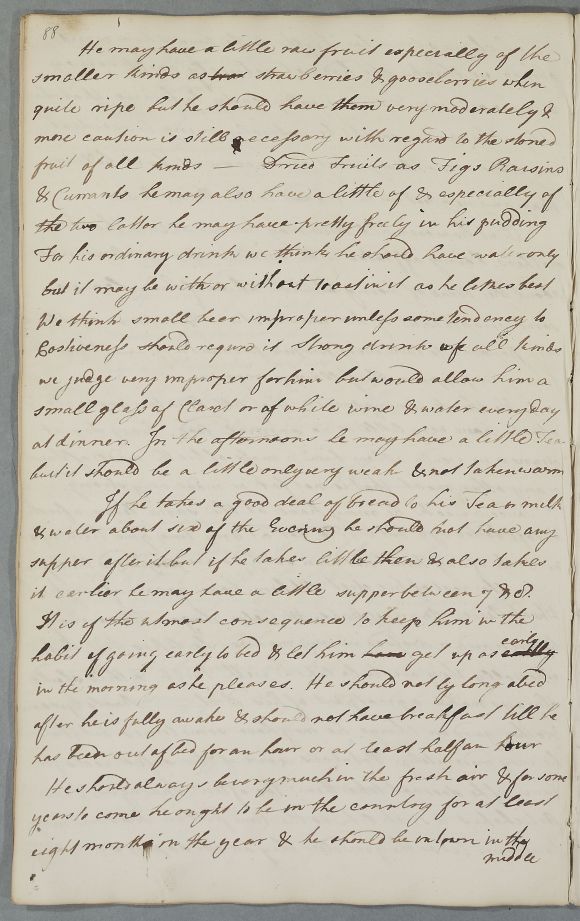 88
He may have a little raw fruit especially of the
smaller kinds as strawberries & gooseberries when
quite ripe but he should have them very moderately &
more caution is still necessary with regard to the stoned
fruit of all kinds — Dried Fruits as Figs Raisins
& Currants he may also have a little of & especially of
the two latter he may have pretty freely in his pudding
For his ordinary drink we think he should have water only
but it may be with or without toast in it as he likes best
We think small beer improper unless some tendency to
Costiveness should require it Strong drink of all kinds
we judge very improper for him but would allow him a
small glass of Claret or of white wine & water every day
at dinner. In the afternoons he may have a little Tea
but it should be a little only very weak & not taken warm
If he takes a good deal of bread to his Tea or milk
& water about six of the Evening he should not have any
supper after it but if he takes little then & also takes
it earlier he may have a little supper between 7 & 8.
It is of the utmost consequence to keep him in the
habit of going early to bed & let him get up as early
in the morning as he pleases. He should not ly long abed
after he is fully awake & should not have breakfast till he
has been out of bed for an hour or at least half an hour
He should always be very much in the fresh air & for some
years to come he ought to be in the country for at least
eight months in the year & he should be in town in the
middle